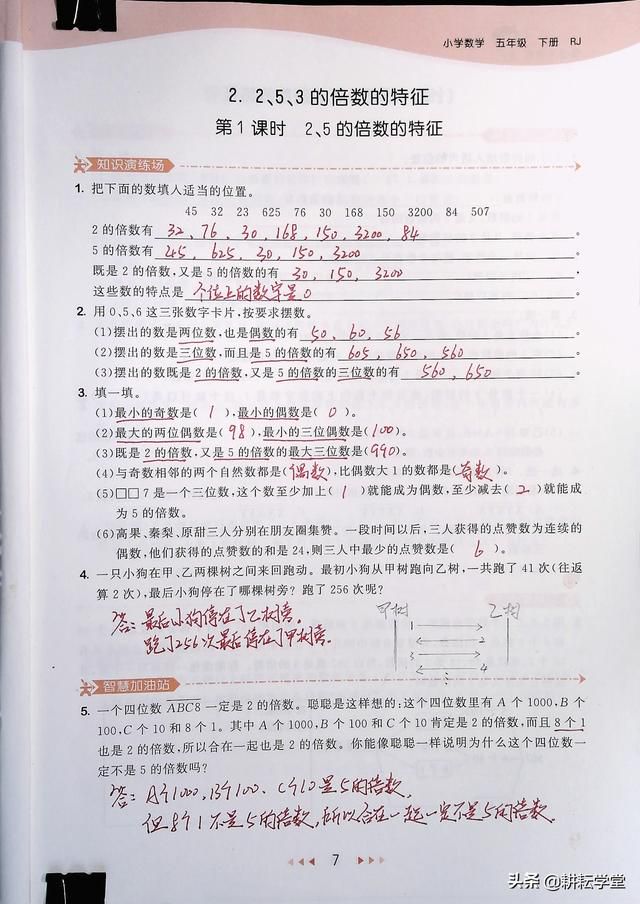 小学数学 五年级 下册 RJ
2. 2、5、3的倍数的特征
第1课时 2、5的倍数的特征
知识演练场
1. 把下面的数填入适当的位置。
45 32 23 625 76 30 168 150 3200 84 507
2的倍数有 32、76、30、168、150、3200、84。
5的倍数有 45、625、30、150、3200。
既是2的倍数,又是5的倍数的有 30、150、3200。
这些数的特点是 个位上的数字是0。
2. 用0、5、6这三张数字卡片,按要求摆数。
(1)摆出的数是两位数,也是偶数的有 50、60、56。
(2)摆出的数是三位数,而且是5的倍数的有 605、650、560。
(3)摆出的数既是2的倍数,又是5的倍数的三位数的有 560、650。
3. 填一填。
(1)最小的奇数是( 1 ),最小的偶数是( 0 )。
(2)最大的两位偶数是( 98 ),最小的三位偶数是(100)。
(3)既是2的倍数,又是5的倍数的最大三位数是(990)。
(4)与奇数相邻的两个自然数都是(偶数),比偶数大1的数都是(奇数)。
(5)□□7是一个三位数,这个数至少加上( 1 )就能成为偶数,至少减去( 2 )就能成
为5的倍数。
(6)高果、秦梨、原甜三人分别在朋友圈集赞。一段时间以后,三人获得的点赞数为连续的
偶数,他们获得的点赞数的和是24,则三人中最少的点赞数是( 6 )。
4. 一只小狗在甲、乙两棵树之间来回跑动。最初小狗从甲树跑向乙树,一共跑了41次(往返
算2次),最后小狗停在了哪棵树旁?跑了256次呢?
答:最后小狗停在了乙树旁。
跑了256次最后停在了甲树旁。
甲树 乙树
1
2
3
4
智慧加油站
5. 一个四位数ABC8一定是2的倍数。聪聪是这样想的:这个四位数里有A个1000,B个
100,C个10和8个1。其中A个1000,B个100和C个10肯定是2的倍数,而且8个1
也是2的倍数,所以合在一起也是2的倍数。你能像聪聪一样说明为什么这个四位数一
定不是5的倍数吗?
答:A个1000,B个100、C个10是5的倍数,
但8个1不是5的倍数,所以合在一起一定不是5的倍数.
7
头条 @耕耘学堂